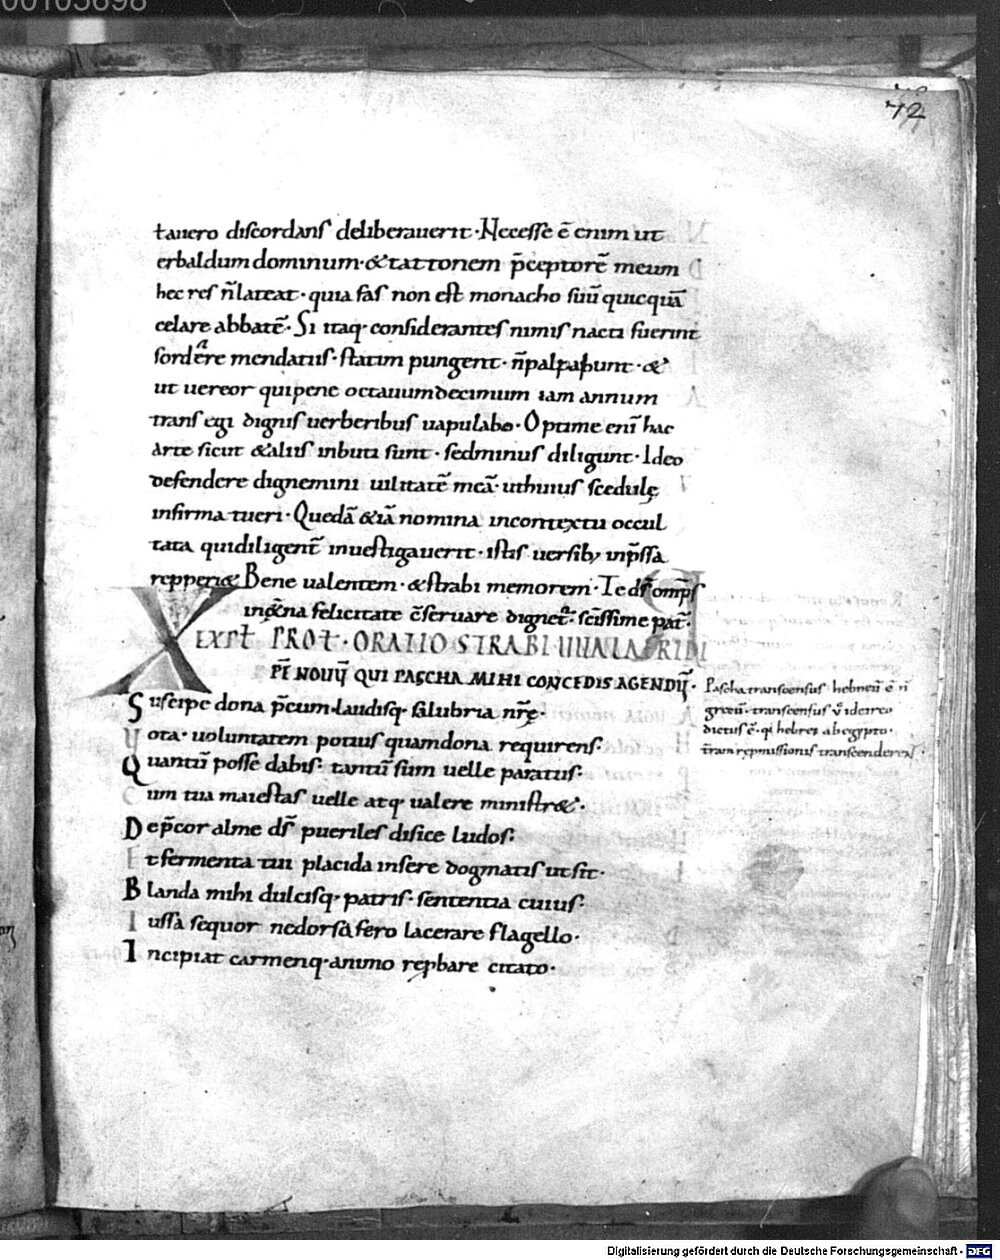 00105698
72
tauero discordans deliberauerit· Necesse ē enim ut
erbaldum dominum· & tattonem p̄ceptorē meum
hec res n̄ lateat· quia fas non est monacho suū quicquā
celare abbatē· Si itaq· considerantes nimis nacti fuerint
sordere mendatiis· statim pungent· n̄ palpabunt· &
ut uereor qui pene octauumdecimum iam annum
transegi dignis uerberibus uapulabo· Optime enī hac
arte sicut & aliis inbuti sunt· sed minus diligunt· Ideo
defendere dignemini uilitatē meā· ut huius scedulę
infirma tueri· Quedā &iā nomina in contextu occul
tata qui diligent̄ inuestigauerit· istis uersib; inp̄ssa
repperi& Bene ualentem· & strabi memorem· Te ds̄ omp̄s
in et̄na felicitate c̄seruare dignet᷑· sc̄issime pat̄·
EXPL̄ PROL̄· ORATIO STRABI
PĒ NOUŪ QUI PASCHA MIHI CONCEDIS AGENDŪ·
Pascha transcensus hebreū ē n̄
grecū· transcensus v̄ ideirco
dictus ē· qi hebrei ab egypto·
t̄ram rep̄missionis transcenderent
Suscipe dona p̄cum· laudisq· salubria nr̄ę·
Vota· uoluntatem potius quam dona requirens·
Quantū posse dabis· tantū sum uelle paratus·
Cum tua maiestas uelle atq· ualere ministr&·
Dep̄cor alme ds̄ pueriles disice ludos·
Et fermenta tui placida insere dogmatis ut sit·
Blanda mihi dulcisq· patris· sententia cuius·
Iussa sequor ne dorsa fero lacerare flagello·
Incipiat carmenq· animo rep̄bare citato·
Digitalisierung gefördert durch die Deutsche Forschungsgemeinschaft - DFG